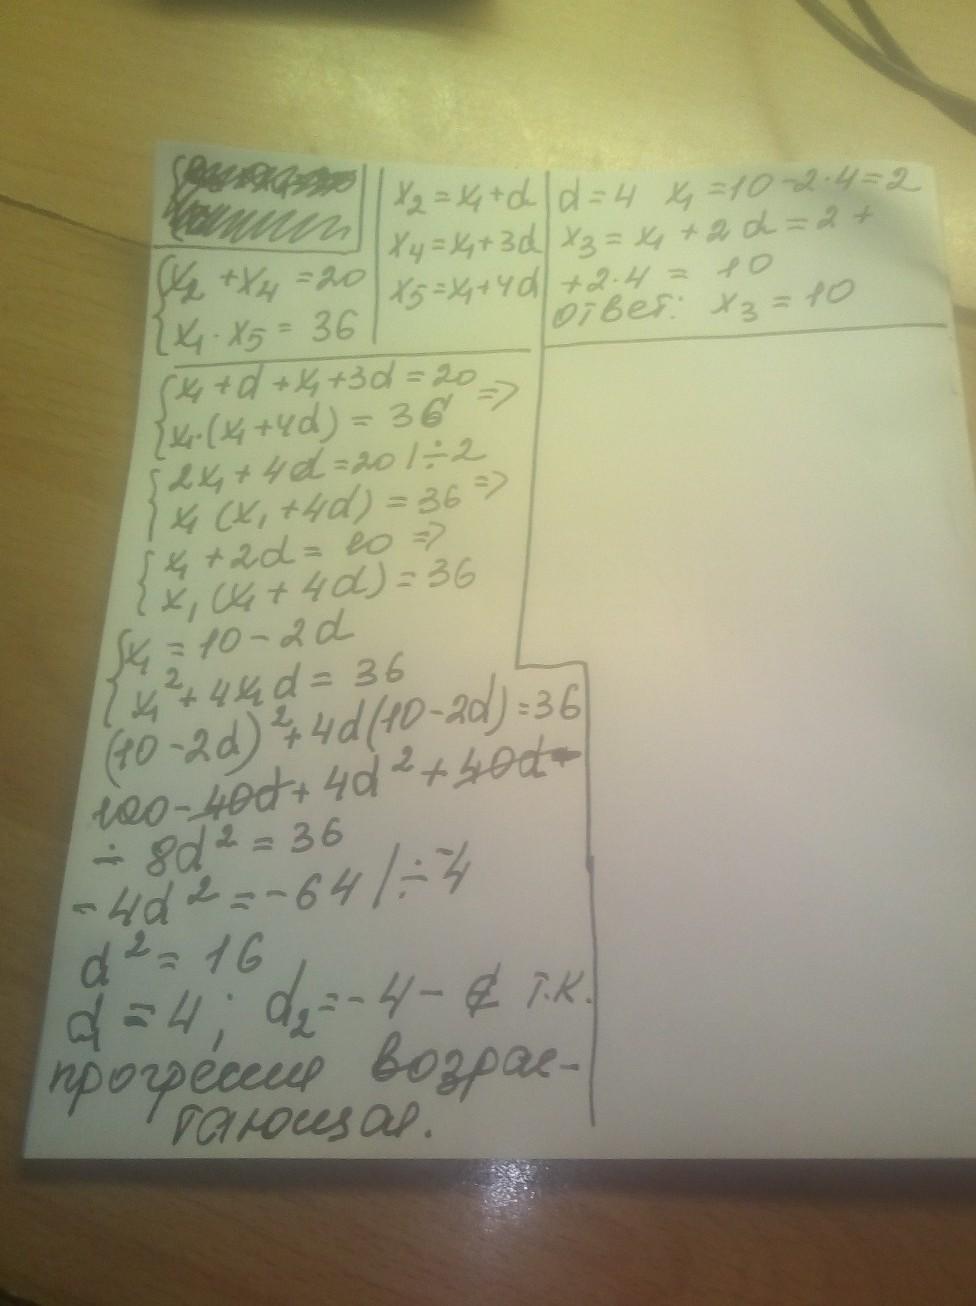 {x₂ + x₄ = 20
{x₁ · x₅ = 36
x₂ = x₁ + d
x₄ = x₁ + 3d
x₅ = x₁ + 4d
d = 4 x₁ = 10 - 2·4 = 2
x₃ = x₁ + 2d = 2 +
+ 2·4 = 10
ответ: x₃ = 10
{x₁ + d + x₁ + 3d = 20
{x₁·(x₁ + 4d) = 36 =>
{2x₁ + 4d = 20 | ÷ 2
{x₁ (x₁ + 4d) = 36 =>
{x₁ + 2d = 10 =>
{x₁ (x₁ + 4d) = 36
{x₁ = 10 - 2d
{x₁² + 4x₁d = 36
(10 - 2d)² + 4d(10 - 2d) = 36
100 - 40d + 4d² + 40d -
÷ 8d² = 36
- 4d² = - 64 | ÷ -4
d² = 16
d₁ = 4; d₂ = - 4 - ∉ т.к.
прогрессия возрас-
тающая.